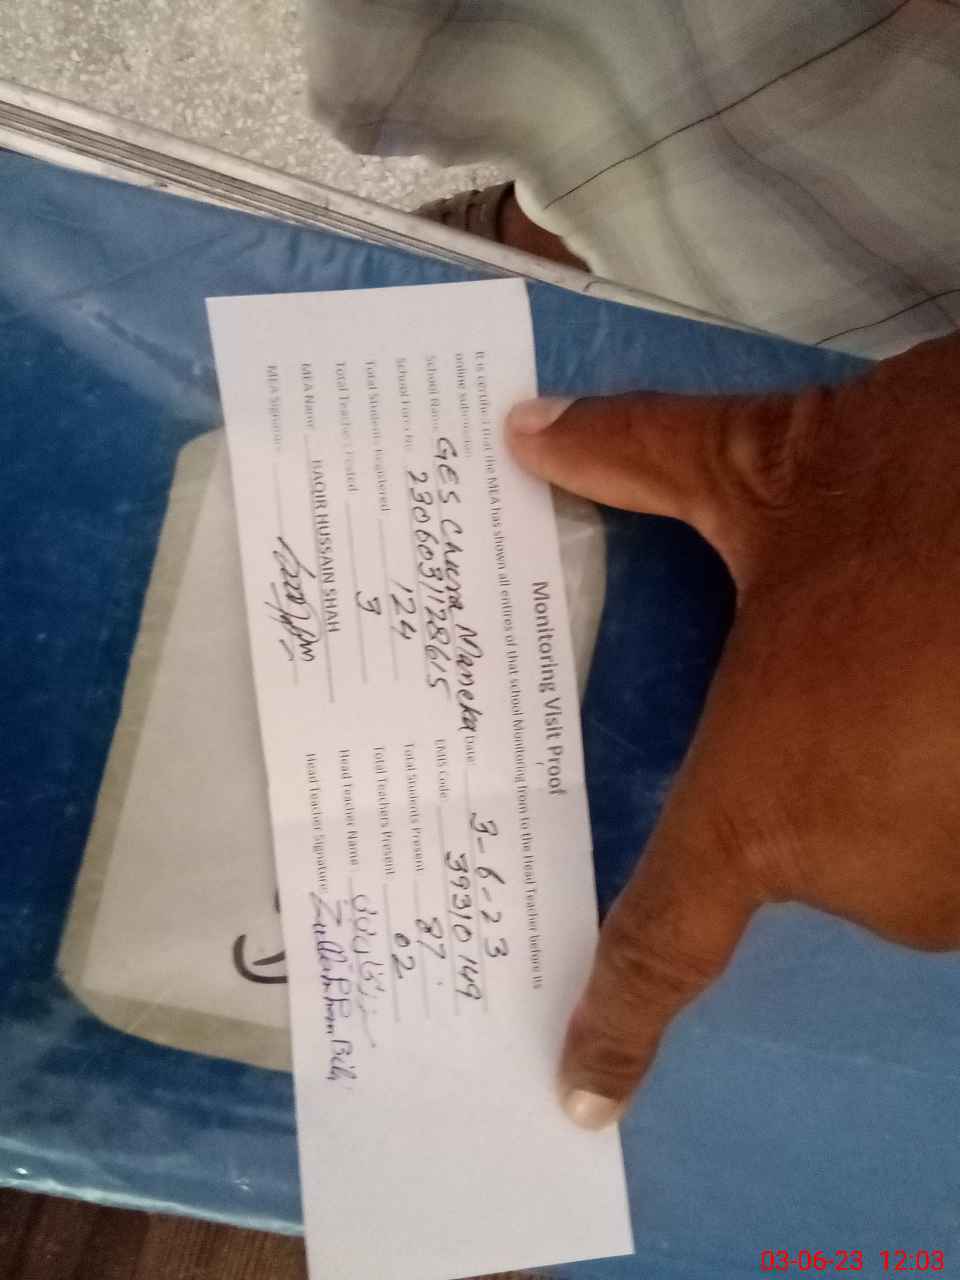 Monitoring Visit Proof
It is certified that the MEA has shown all entires of that school Monitoring from to the Head Teacher before its
online submission.
School Name: GES Chura Maneka Date: 3-6-23
School Form No. 2306031128615 EMIS Code: 39310149
Total Students Registered 124 Total Students Present 87
Total Teachers Posted 3 Total Teachers Present 02
MEA Name: BAQIR HUSSAIN SHAH Head Teacher Name:
MEA Signature: Head Teacher Signature:
03-06-23 12:03